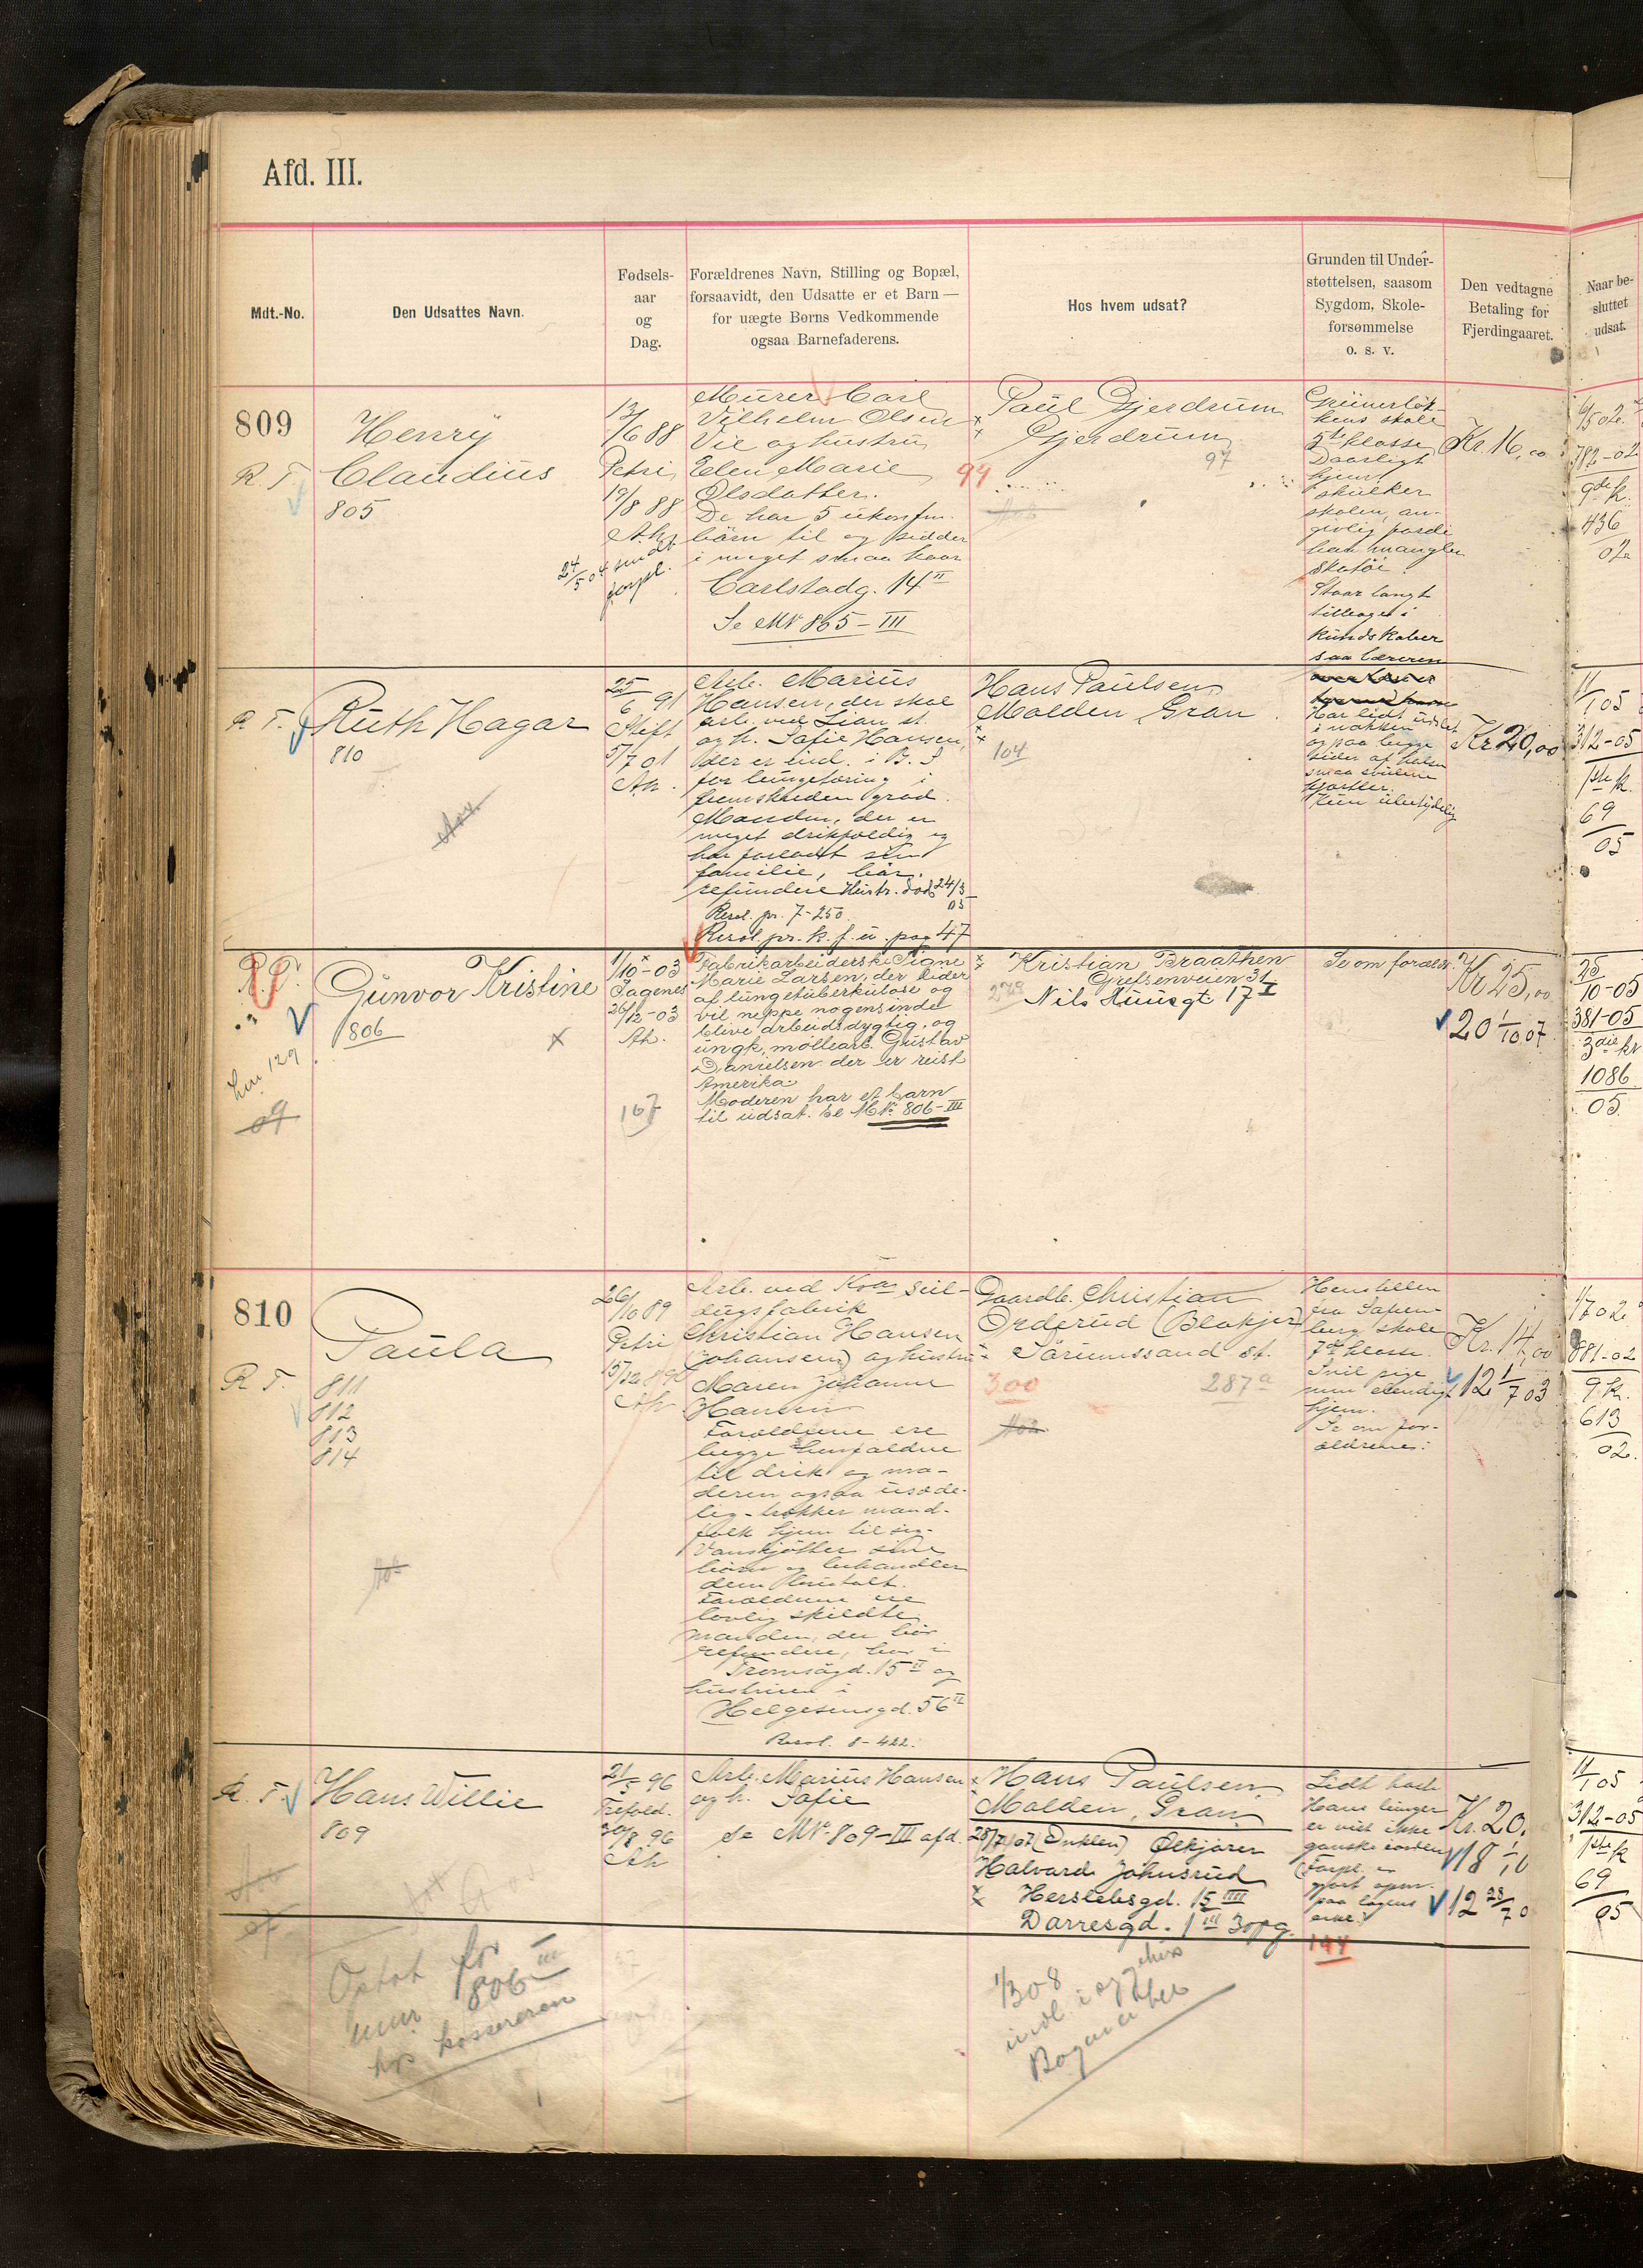 Afd. III.
Mdt.-No.
Den Udsattes Navn.
Fødsels-
aar
og
Dag.
Forældrenes Navn, Stilling og Bopæl,
forsaavidt, den Udsatte er et Barn —
for uægte Børns Vedkommende
ogsaa Barnefaderens.
Hos hvem udsat?
Grunden til Under-
støttelsen, saasom
Sygdom, Skole-
forsømmelse
o. s. v.
Den vedtagne
Betaling for
Fjerdingaaret.
Naar be-
sluttet
udsat.
809
R. T.
Henry
Claudius
805
13/6 88
Petri
19/8 88
Ak.
24/5 04 sendt
forpl.
Murer Carl
Vilhelm Olsen
Vie og hustru
Elen Marie
Olsdatter.
De har 5 ukonfm.
børn til og sidder
i meget smaa kaar
Carlstadg. 14 II
Se MN 865 – III
Paul Gjerdrum
Gjerdrum
94
97
Grünerløk-
kens skole
5te klasse
Daarligt
hjem
skulker
skolen, an-
givlig fordi
han mangler
skotøi.
Staar langt
tilbage i
kundskaber
saa læreren
Kr. 16,00
6/5 02.
782-02
9de k.
436
02
R. T.
Ruth Hagar
810
25/6 91
Stift
5/7 01
Ak.
Arb. Marius
Hansen, der skal
arb. ved Lian st.
og h. Sofie Hansen,
der er ind. i B. S
for lungetæring i
fremskreden grad.
Manden, der er
meget drikfældig og
har forladt sin
familie, bør
refundere Hustr. død 24/3 05
Resol. pr. 7-250
Resol. pr. k. f. u. pag 47
Hans Paulsen
Molden, Gran
104
Har lidt udslet
i nakken
og paa begge
sider af halsen
smaa svulne
kjertler.
Kun ubetydelig
Kr 20,00
11/1 05
312-05
1ste k.
69
05
R. T.
Gunvor Kristine
806
1/10-03
Sagenes
26/12-03
Ak.
167
Fabrikarbeiderske Signe
Marie Larsen, der lider
af lungetuberkulose og
vil neppe nogensinde
blive arbeidsdygtig, og
ungk. møllearb. Gustav
Danielsen der er reist
Amerika
Moderen har et barn
til udsat. Se MN. 806-III
Kristian Braathen
Grefsenveien 31
278
Nils Huusgt. 17 I
Se om forældr.
Kr 25,00
20 1/10 07
25/10-05
381-05
3die kv
1086
05.
129
07
810
R. T.
Paula
811
812
813
814
26/10 89
Petri
15/12 89
Ak
Arb. ved Kra Seil-
dugsfabrik
Christian Hansen
(Johansen) og hustru
Maren Johanne
Hansen
Forældrene ere
begge henfaldne
til drik og mo-
deren ogsaa usæde-
lig – trækker mand-
folk hjem til sig.
Vanskjøtter sine
børn og behandler
dem brutalt.
Forældrene ere
lovlig skildte
manden, der bør
refundere, bor i
Tromsøgd. 15 II og
hustruen i
Helgesensgd. 56 II
Resol. 8-422.
Gaardb. Christian
Orderud (Blakjer)
Sörumssand st.
300
287a
Henstillen
fra Sofien-
berg skole
7de klasse.
Snil pige
men elendigt
hjem.
Se om for-
ældrene:
Kr. 14,00
12 1/7 03
1/7 02
881-02
9. k.
613
02.
R. T.
Hans Willie
809
21/5 96
Trefold.
30/8 96
Ak
Arb. Marius Hansen
og h. Sofie
Se MNo 809-III afd.
Hans Paulsen
Molden, Gran
28/7 07 (Onklen) Ølkjører
Halvard Johnsrud
Herslebsgd. 15 IIII
Darresgd. 1 III 3opg.
Lidt hoste
Hans lunger
er vist ikke
ganske i orden
Forpl. er
gjort opm.
paa lægens
194
Kr. 20.
18 1/1 0
12 28/7 0
11/1 05
312-05
1ste k
69
05
806 III
hos kassereren
1/3 08
indl. i